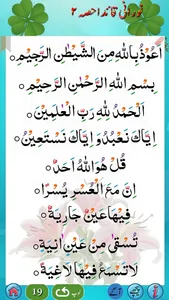 نورانی قائدہ حصہ ۲
اَعُوْذُ بِاللّٰهِ مِنَ الشَّيْطٰنِ الرَّجِيْمِ ○
بِسْمِ اللّٰهِ الرَّحْمٰنِ الرَّحِيْمِ ○
اَلْحَمْدُ لِلّٰهِ رَبِّ الْعٰلَمِيْنَ ○
اِيَّاكَ نَعْبُدُ وَ اِيَّاكَ نَسْتَعِيْنُ ○
قُلْ هُوَ اللّٰهُ اَحَدٌ ○
اِنَّ مَعَ الْعُسْرِ يُسْرًا ○
فِيْهَا عَيْنٌ جَارِيَةٌ ○
تُسْقٰى مِنْ عَيْنٍ اٰنِيَةٍ ○
لَا تَسْمَعُ فِيْهَا لَاغِيَةً ○
19